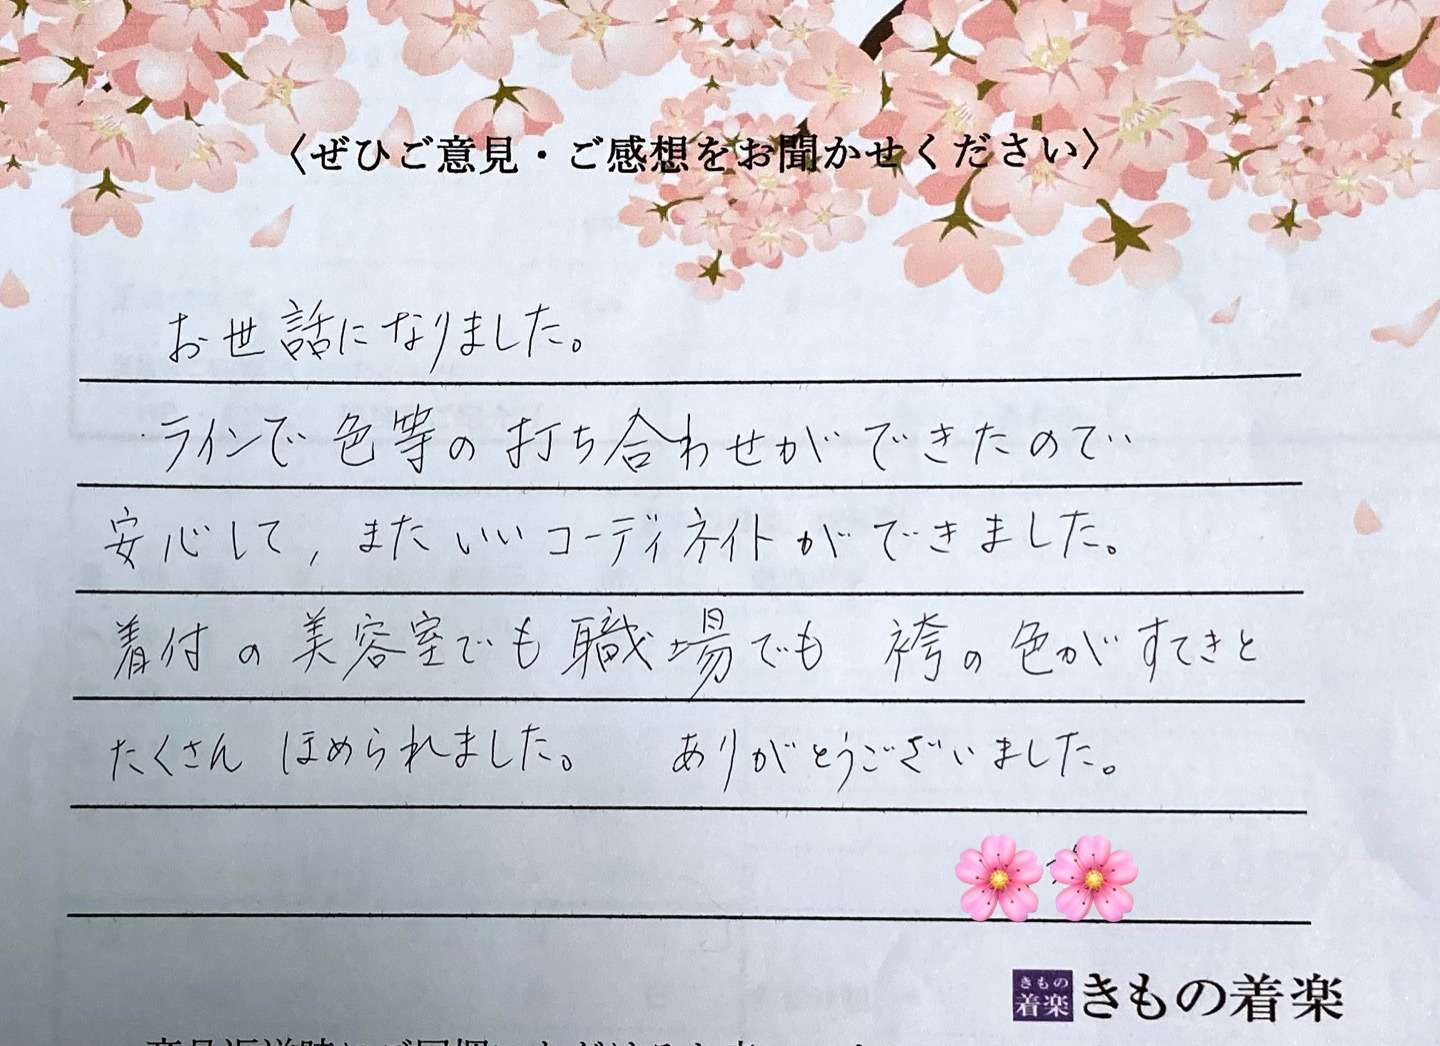 〈ぜひご意見・ご感想をお聞かせください〉
お世話になりました。
ラインで色等の打ち合わせができたので
安心して、またいいコーディネイトができました。
着付の美容室でも職場でも 袴の色がすてきと
たくさん ほめられました。 ありがとうございました。
きもの
着楽
きもの着楽